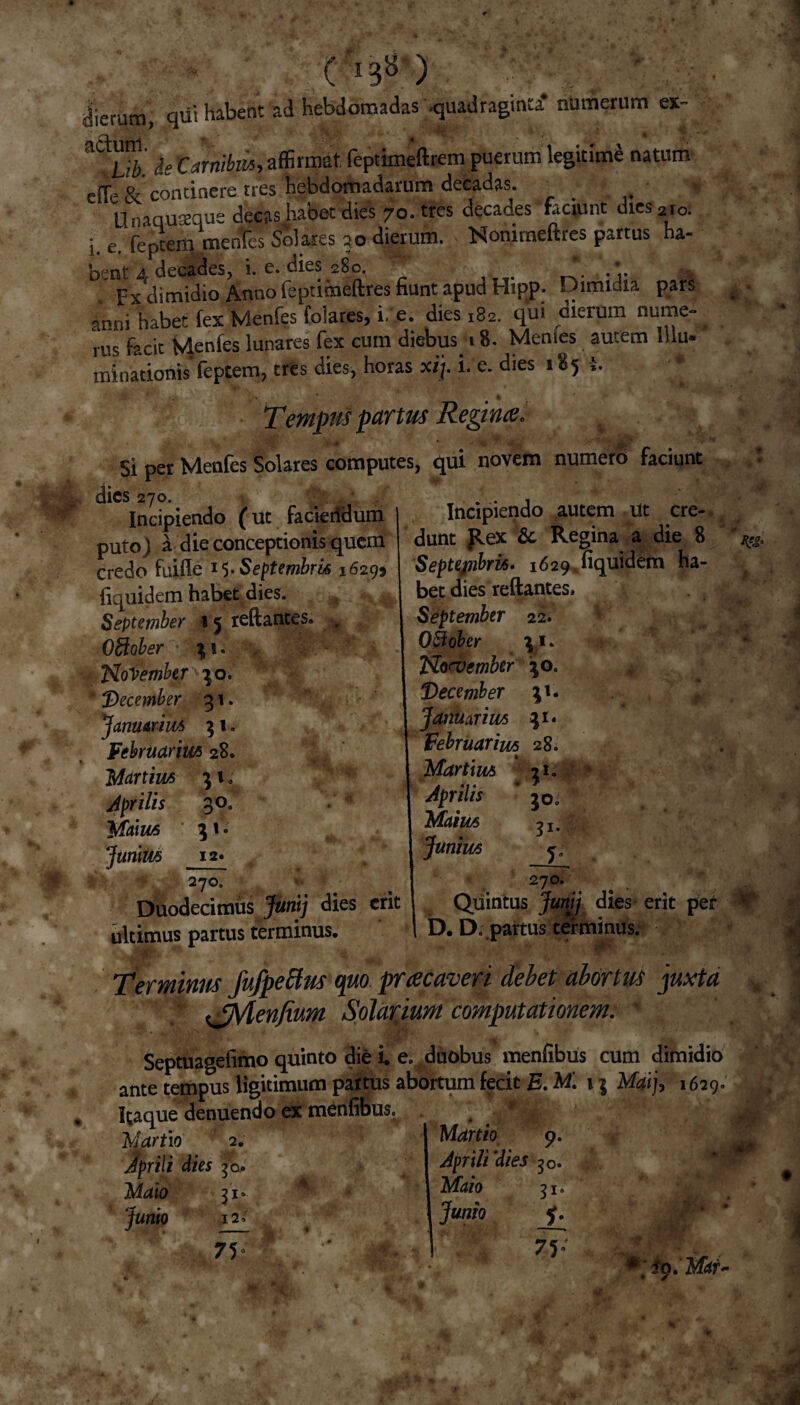 ( 138 )
dierum, qui habent ad hebdomadas quadraginta numerum ex-
actum.
Lib. de Carnibus, affirmat ſeptimeſtrem puerum legitimè natum
eſſe & continere tres hebdomadarum decadas.
Unaquæque decas habet dies 70. tres decades faciunt dies 210.
i. e. ſeptem menſes Solares 30 dierum. Nonimeſtres partus ha-
bent 4 decades, i. e. dies 280.
Ex dimidio Anno ſeptimeſtres fiunt apud Hipp. Dimidia pars
anni habet ſex Menſes ſolares, i. e. dies 182. qui dierum nume-
rus facit Menſes lunares ſex cum diebus 18. Menſes autem Illu-
minationis ſeptem, tres dies, horas xij. i. e. dies 185
Tempus partus Reginæ.
Si per Menſes Solares computes, qui novem numero faciunt
dies 270.
Incipiendo (ut faciendum
puto) à die conceptionis quem
credo fuiſſe 15. Septembris 1629,
ſiquidem habet dies.
September 15 reſtantes.
October 31.
November 30.
December 31.
Januarius 31.
Februarius 28.
Martius 31.
Aprilis 30.
Maius 31.
Junius 12.
270.
Duodecimus Junij dies erit
ultimus partus terminus.
Incipiendo autem ut cre-
dunt Rex & Regina a die 8 Reg.
Septembris. 1629 ſiquidem ha-
bet dies reſtantes.
September 22.
October 31.
November 30.
December 31.
Januarius 31.
Februarius 28.
Martius 31.
Aprilis 30.
Maius 31.
Junius 5.
270.
Quintus Junij dies erit per
D. D. partus terminus.
Terminus ſuſpectus quo præcaveri debet abortus juxta
Menſium Solarium computationem.
Septuageſimo quinto die i. e. duobus menſibus cum dimidio
ante tempus ligitimum partus abortum fecit E. M. 13 Maij, 1629.
Itaque denuendo ex menſibus.
Martio 2.
Aprili dies 30.
Maio 31.
Junio 12.
75.
Martio 9.
Aprili dies 30.
Maio 31.
Junio 5.
75.
Mar-